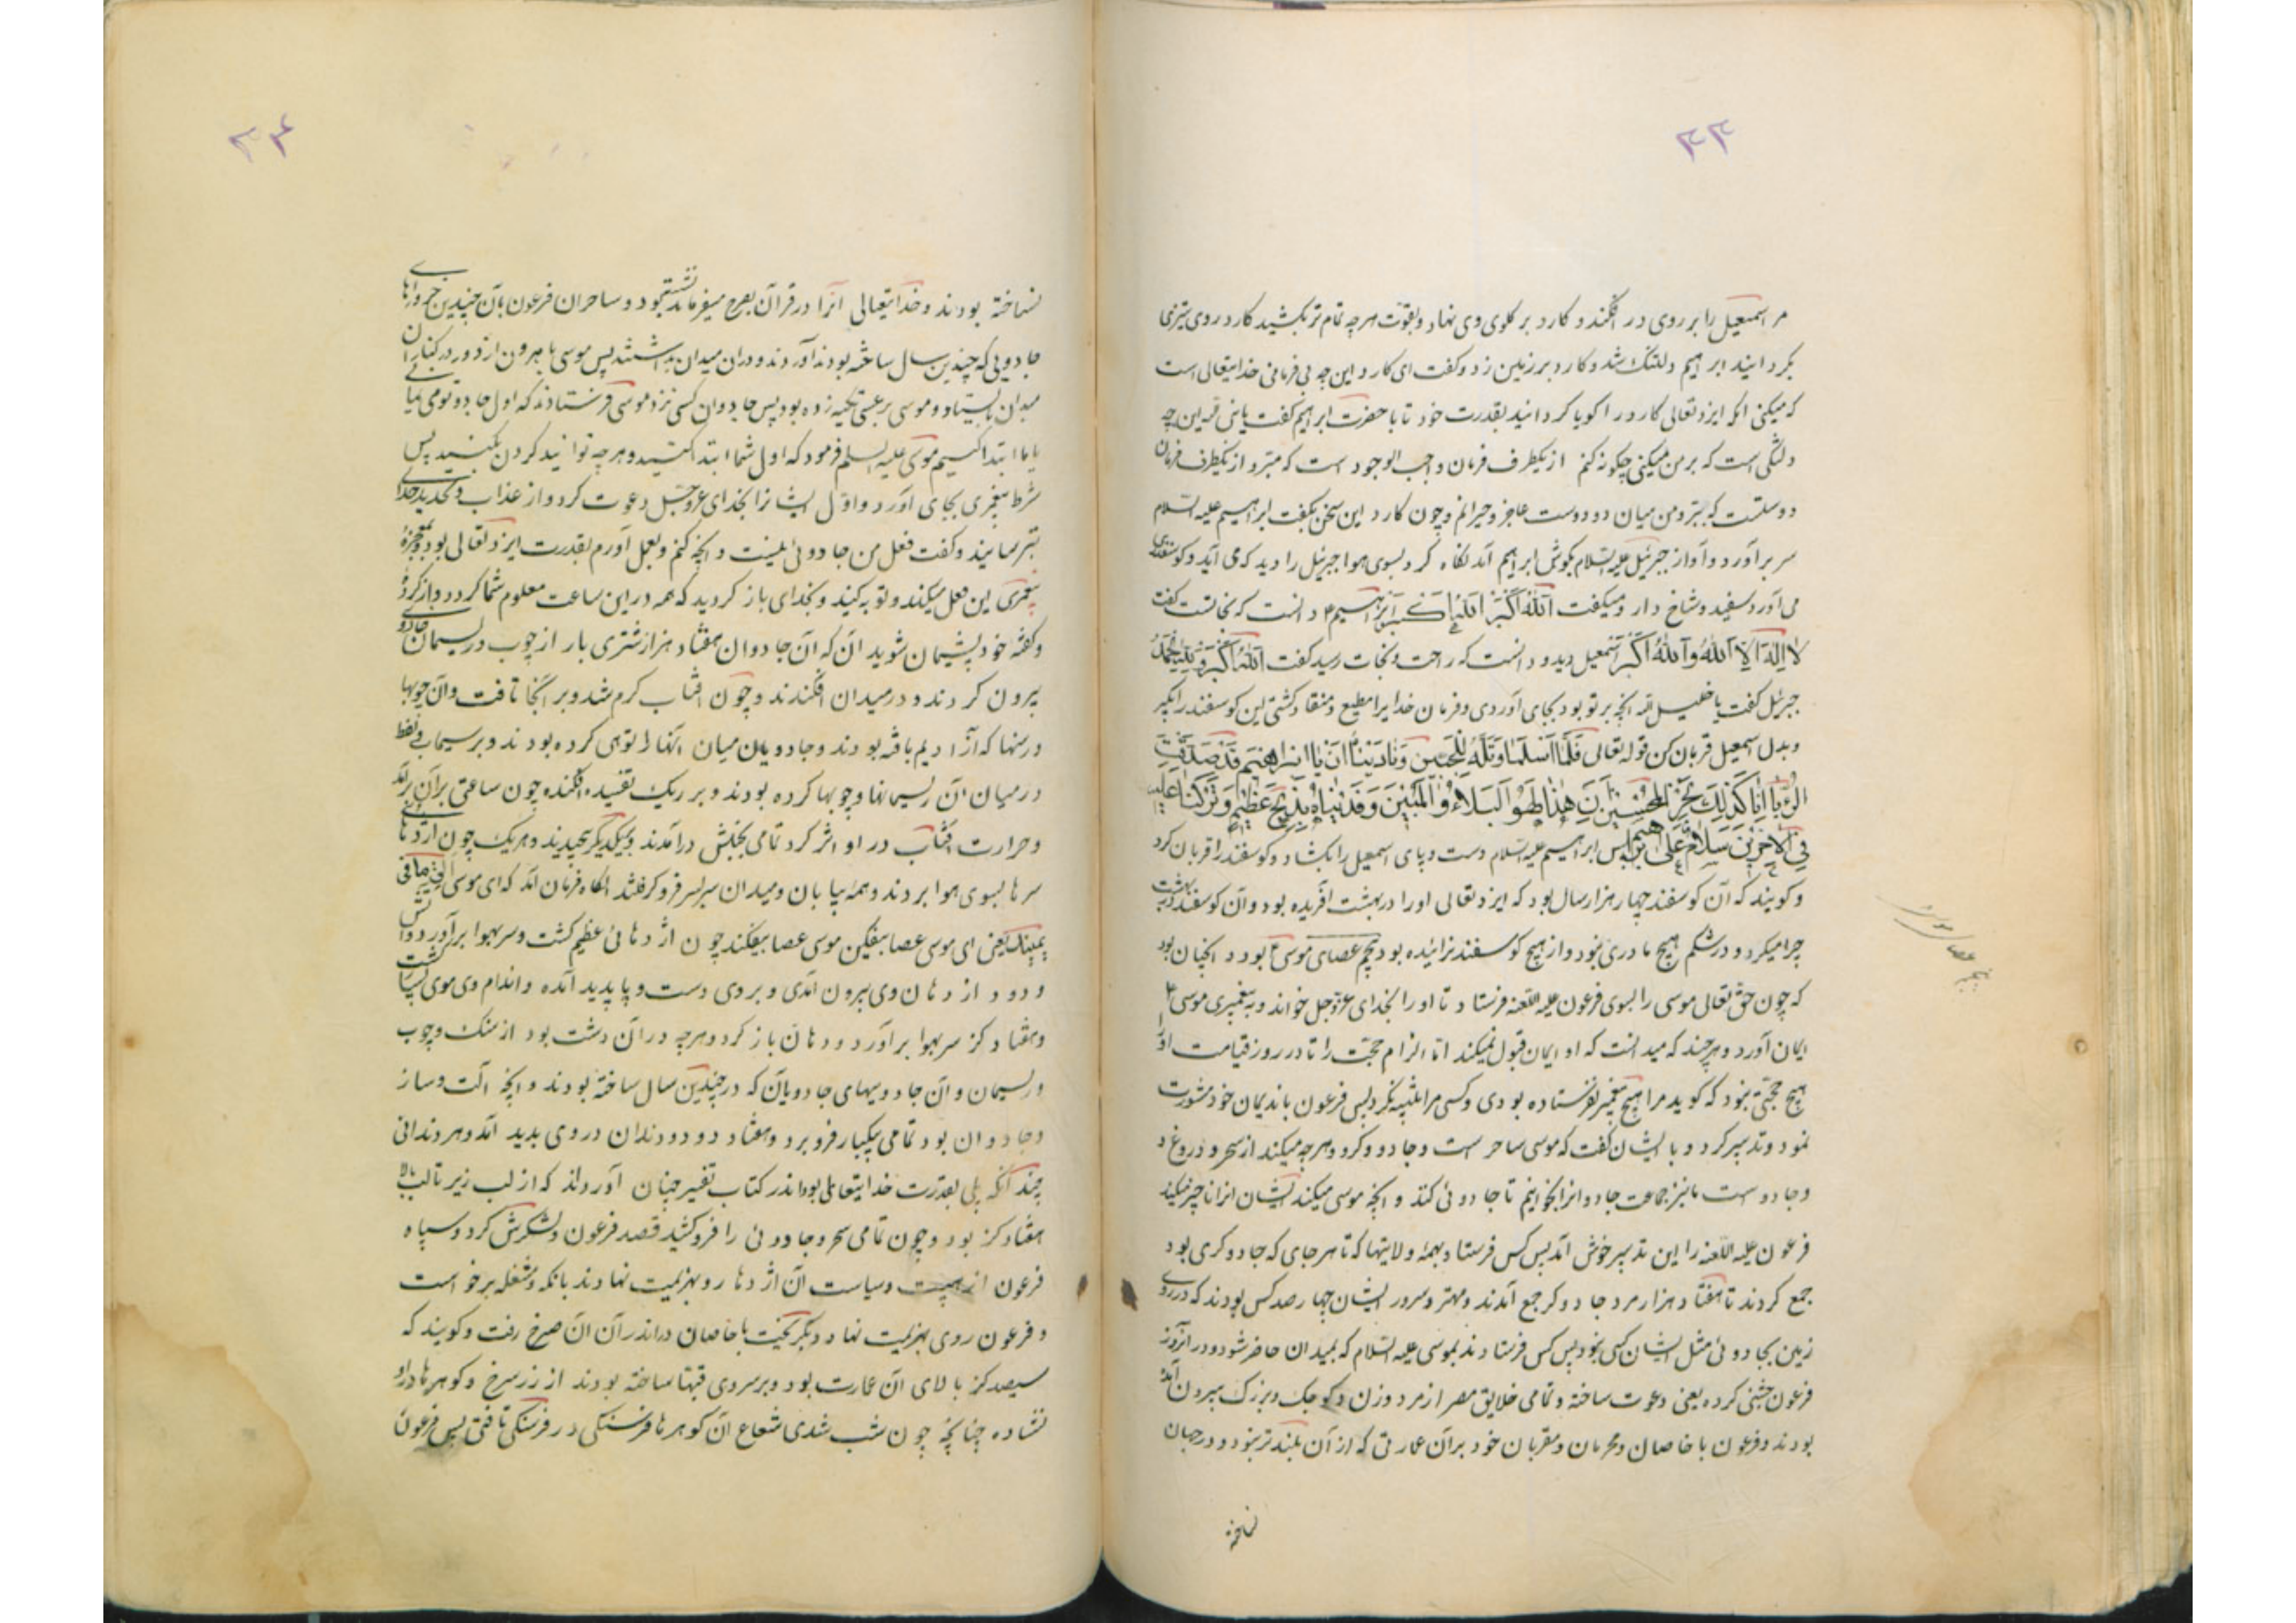 ۴۳
مر اسمعیل را بر روی در افکند و کارد بر کلوی وی نهاد و بقوت هر چه تمام تر بکشید کارد روی تیزی
بکردانید ابراهیم دلتنک شد و کارد بر زمین زد و کفت ای کارد این چه بی فرمانی خدایتعالی است
که میکنی انکه ایزد تعالی کارد را کویا کردانید بقدرت خود تا با حضرت ابراهیم کفت یا نبی الله این چه
دلتنکی است که بر من میکنی چکونه کنم از یکطرف فرمان واجب الوجود است که مبر و از یکطرف فرمان
دوستست که ببر و من میان دو دوست عاجز و حیرانم و چون کارد این سخن بکفت ابراهیم علیه السلام
سر برآورد و آواز جبرئیل علیه السلام بکوش ابراهیم آمد نکاه کرد بسوی هوا جبرئیل را دید که می آید و کوسفندی
می آورد سفید و شاخ دار و میکفت الله اکبر الله اکبر ابراهیم دانست که نجاتست کفت
لا اله الا الله والله اکبر اسمعیل دید و دانست که راحت و نجات رسید کفت الله اکبر و لله الحمد
جبرئیل کفت یا خلیل الله انچه بر تو بود بجای آوردی و فرمان خدایرا مطیع و منقاد کشتی این کوسفند را بکیر
و بدل اسمعیل قربان کن قوله تعالی فلما اسلما وتله للجبین ونادیناه ان یا ابراهیم قد صدقت
الرؤیا انا کذلک نجزی المحسنین ان هذا لهو البلاء المبین وفدیناه بذبح عظیم وترکنا علیه
فی الآخرین سلام علی ابراهیم پس ابراهیم علیه السلام دست و پای اسمعیل را بکشاد و کوسفند را قربان کرد
و کویند که آن کوسفند چهار هزار سال بود که ایزد تعالی او را در بهشت آفریده بود و آن کوسفند در بهشت
چرا میکرد و در شکم هیچ مادری نبود و از هیچ کوسفند نزائیده بود پنجم عصای موسی بود و انچنان بود
که چون حق تعالی موسی را بسوی فرعون علیه اللعنه فرستاد تا او را بخدای عزوجل خواند و به پیغمبری موسی
ایمان آورد و هر چند که میدانست که او ایمان قبول نمیکند اما الزام حجت را تا در روز قیامت او را
هیچ حجتی نبود که کوید مرا هیچ پیغمبر نفرستاده بودی و کسی مرا تنبیه نکرد پس فرعون با ندیمان خود مشورت
نمود و تدبیر کرد و با ایشان کفت که موسی ساحر است و جادو و کرد و هر چه میکند از سحر و دروغ و
و جادوست ما نیز جماعت جادوانرا بخوانیم تا جادوئی کند و انچه موسی میکند ایشان انرا ناچیز میکنند
فرعون علیه اللعنه را این تدبیر خوش آمد پس کس فرستاد بهمه ولایتها که تا هر جای که جادوکری بود
جمع کردند تا هفتاد هزار مرد جادوکر جمع آمدند و مهتر و سرور ایشان چهار صد کس بودند که در روی
زمین بجادوئی مثل ایشان کسی نبود پس کس فرستادند بموسی علیه السلام که بمیدان حاضر شود و در آنروز
فرعون جشنی کرده یعنی دعوت ساخته و تمامی خلایق مصر از مرد و زن و کوچک و بزرک بیرون آمده
بودند و فرعون با خاصان و محرمان و مقربان خود بر آن عمارتی که از آن بلندتر نبود و در جهان
نساخته
پنجم عصای موسی
۴۴
نساخته بودند و خدایتعالی انرا در قرآن بصرح میفرماید نشسته بود و ساحران فرعون با آن چندین خروارهای
جادویی که چندین سال ساخته بودند آوردند و در ان میدان بداشتند پس موسی با هرون از دور در کنار ان
میدان بایستاد و موسی بر عصی تکیه زده بود پس جادوان کسی نزد موسی فرستادند که اول جادو تو می نمائی
یا ما ابتدا کنیم موسی علیه السلم فرمود که اول شما ابتدا کنید و هر چه توانید کردن بکنید پس
شرط پیغمبری بجای آورد و اول ایشانرا بخدای عزوجل دعوت کرد و از عذاب و تهدید خدای
بترسانید و کفت فعل من جادوئی نیست و انچه کنم و بعمل آورم بقدرت ایزد تعالی بود و معجزهٔ
پیغمبری این فعل میکند و توبه کنید و بخدای باز کردید که همه در این ساعت معلوم شما کردد و از کردهٔ
و کفتهٔ خود پشیمان شوید آن که آن جادوان هفتاد هزار شتری بار از چوب و ریسمان جادو
بیرون کردند و در میدان افکندند و چون افتاب کرم شد و بر انجا تافت و آن چوبها
و رسنها که آنرا دیم بافته بودند و جادویان میان انها را توهی کرده بودند و بر سیماب و نفط
در میان آن ریسمانها و چوبها کرده بودند و بر ریک تفسیده افکنده چون ساعتی بر آن برآمد
و حرارت افتاب در او اثر کرد تمامی بجنبش درآمدند و بیکدیکر پیچیدند و هر یک چون اژدهائی
سرها بسوی هوا بردند و همه بیابان و میدان سر بسر فرو کرفتند انکاه فرمان آمد که ای موسی الق ما فی
یمینک یعنی ای موسی عصا بیفکن موسی عصا بیفکند چون اژدهائی عظیم کشت و سر بهوا برآورد و آتش
و دود از دهان وی بیرون آمدی و بر وی دست و پا پدید آمده و اندام وی موی سیاه کشت
و هفتاد کز سر بهوا برآورد و دهان باز کرد و هر چه در آن دشت بود از سنک و چوب
و ریسمان و آن جادوییهای جادویان که در چندین سال ساخته بودند و انچه الت و ساز
و جادوان بود تمامی بیکبار فرو برد و هفتاد دو دو دندان در وی پدید آمد و هر دندانی
چند انکه پلی بقدرت خدایتعالی بود اندر کتاب تفسیر چنان آوردند که از لب زیر تا لب بالا
هفتاد کز بود و چون تمامی سحر و جادوئی را فرو کشید قصد فرعون و لشکرش کرد و سپاه
فرعون از هیبت و سیاست آن اژدها رو بهزیمت نهادند بانکه و مشغله برخواست
و فرعون روی بهزیمت نهاد و بکریخت با خاصان در اندر آن صرخ رفت و کویند که
سیصد کز بالای آن عمارت بود و بر سر وی قبها ساخته بودند از زر سرخ و کوهرها در او
نشاده چنانچه چون شب شدی شعاع آن کوهرها فرسنکی در فرسنکی تافتی پس فرعون